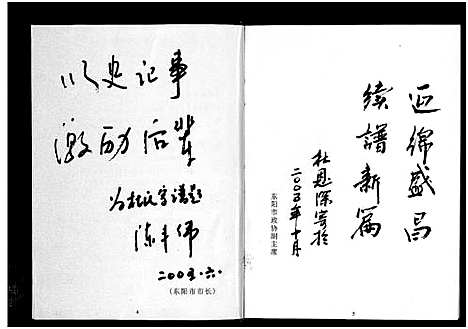 以史记事
激励后辈
为杜氏宗谱题
陈丰伟
二00五.六.
(东阳市市长)
4
延绵盛昌
续谱新篇
杜恩深寄於
二00五年十月
东阳市政协副主席
5